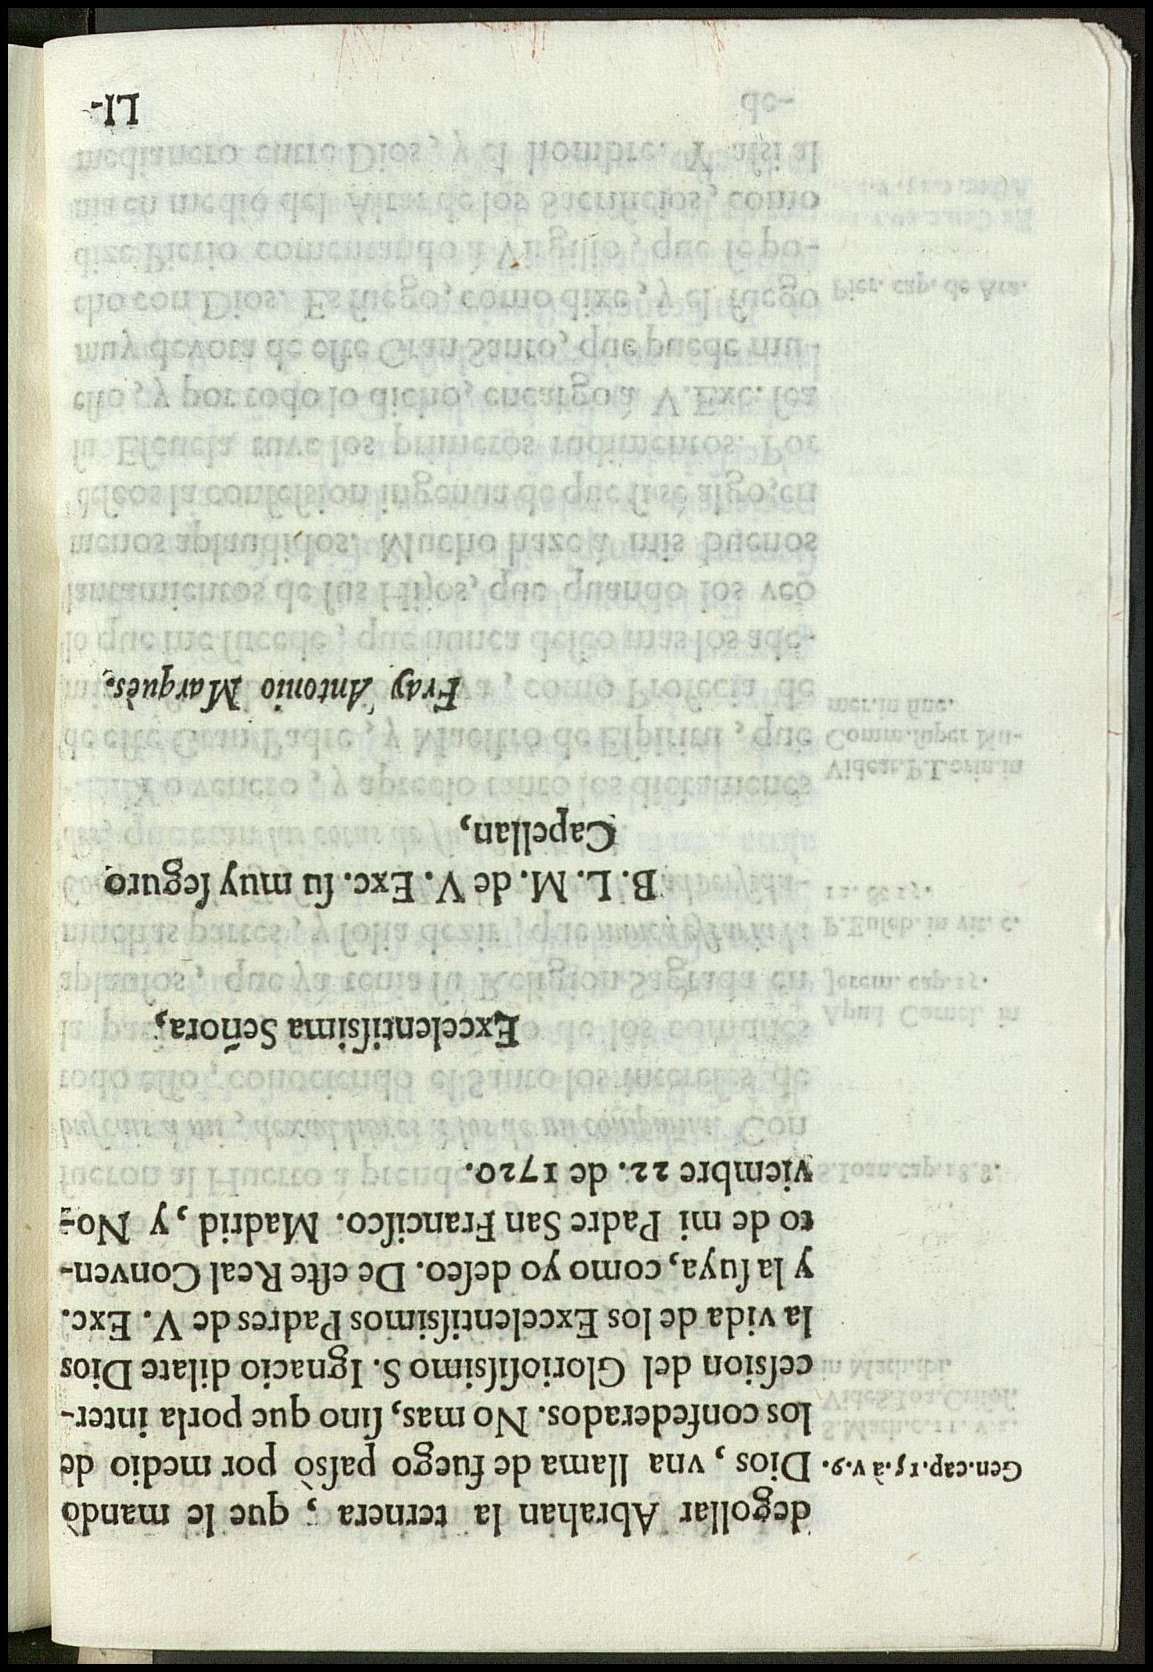 degollar Abrahan la ternera, que le mandò
Gen.cap.15.à v.9. Dios, vna llama de fuego paſsò por medio de
los confederados. No mas, ſino que porla inter-
ceſsion del Glorioſiſsimo S. Ignacio dilate Dios
la vida de los Excelentiſsimos Padres de V. Exc.
y la ſuya, como yo deſeo. De eſte Real Conven-
to de mi Padre San Franciſco. Madrid, y No-
viembre 22. de 1720.
Excelentiſsima Señora,
B. L. M. de V. Exc. ſu muy ſeguro
Capellan,
Fray Antonio Marquès.
LI-